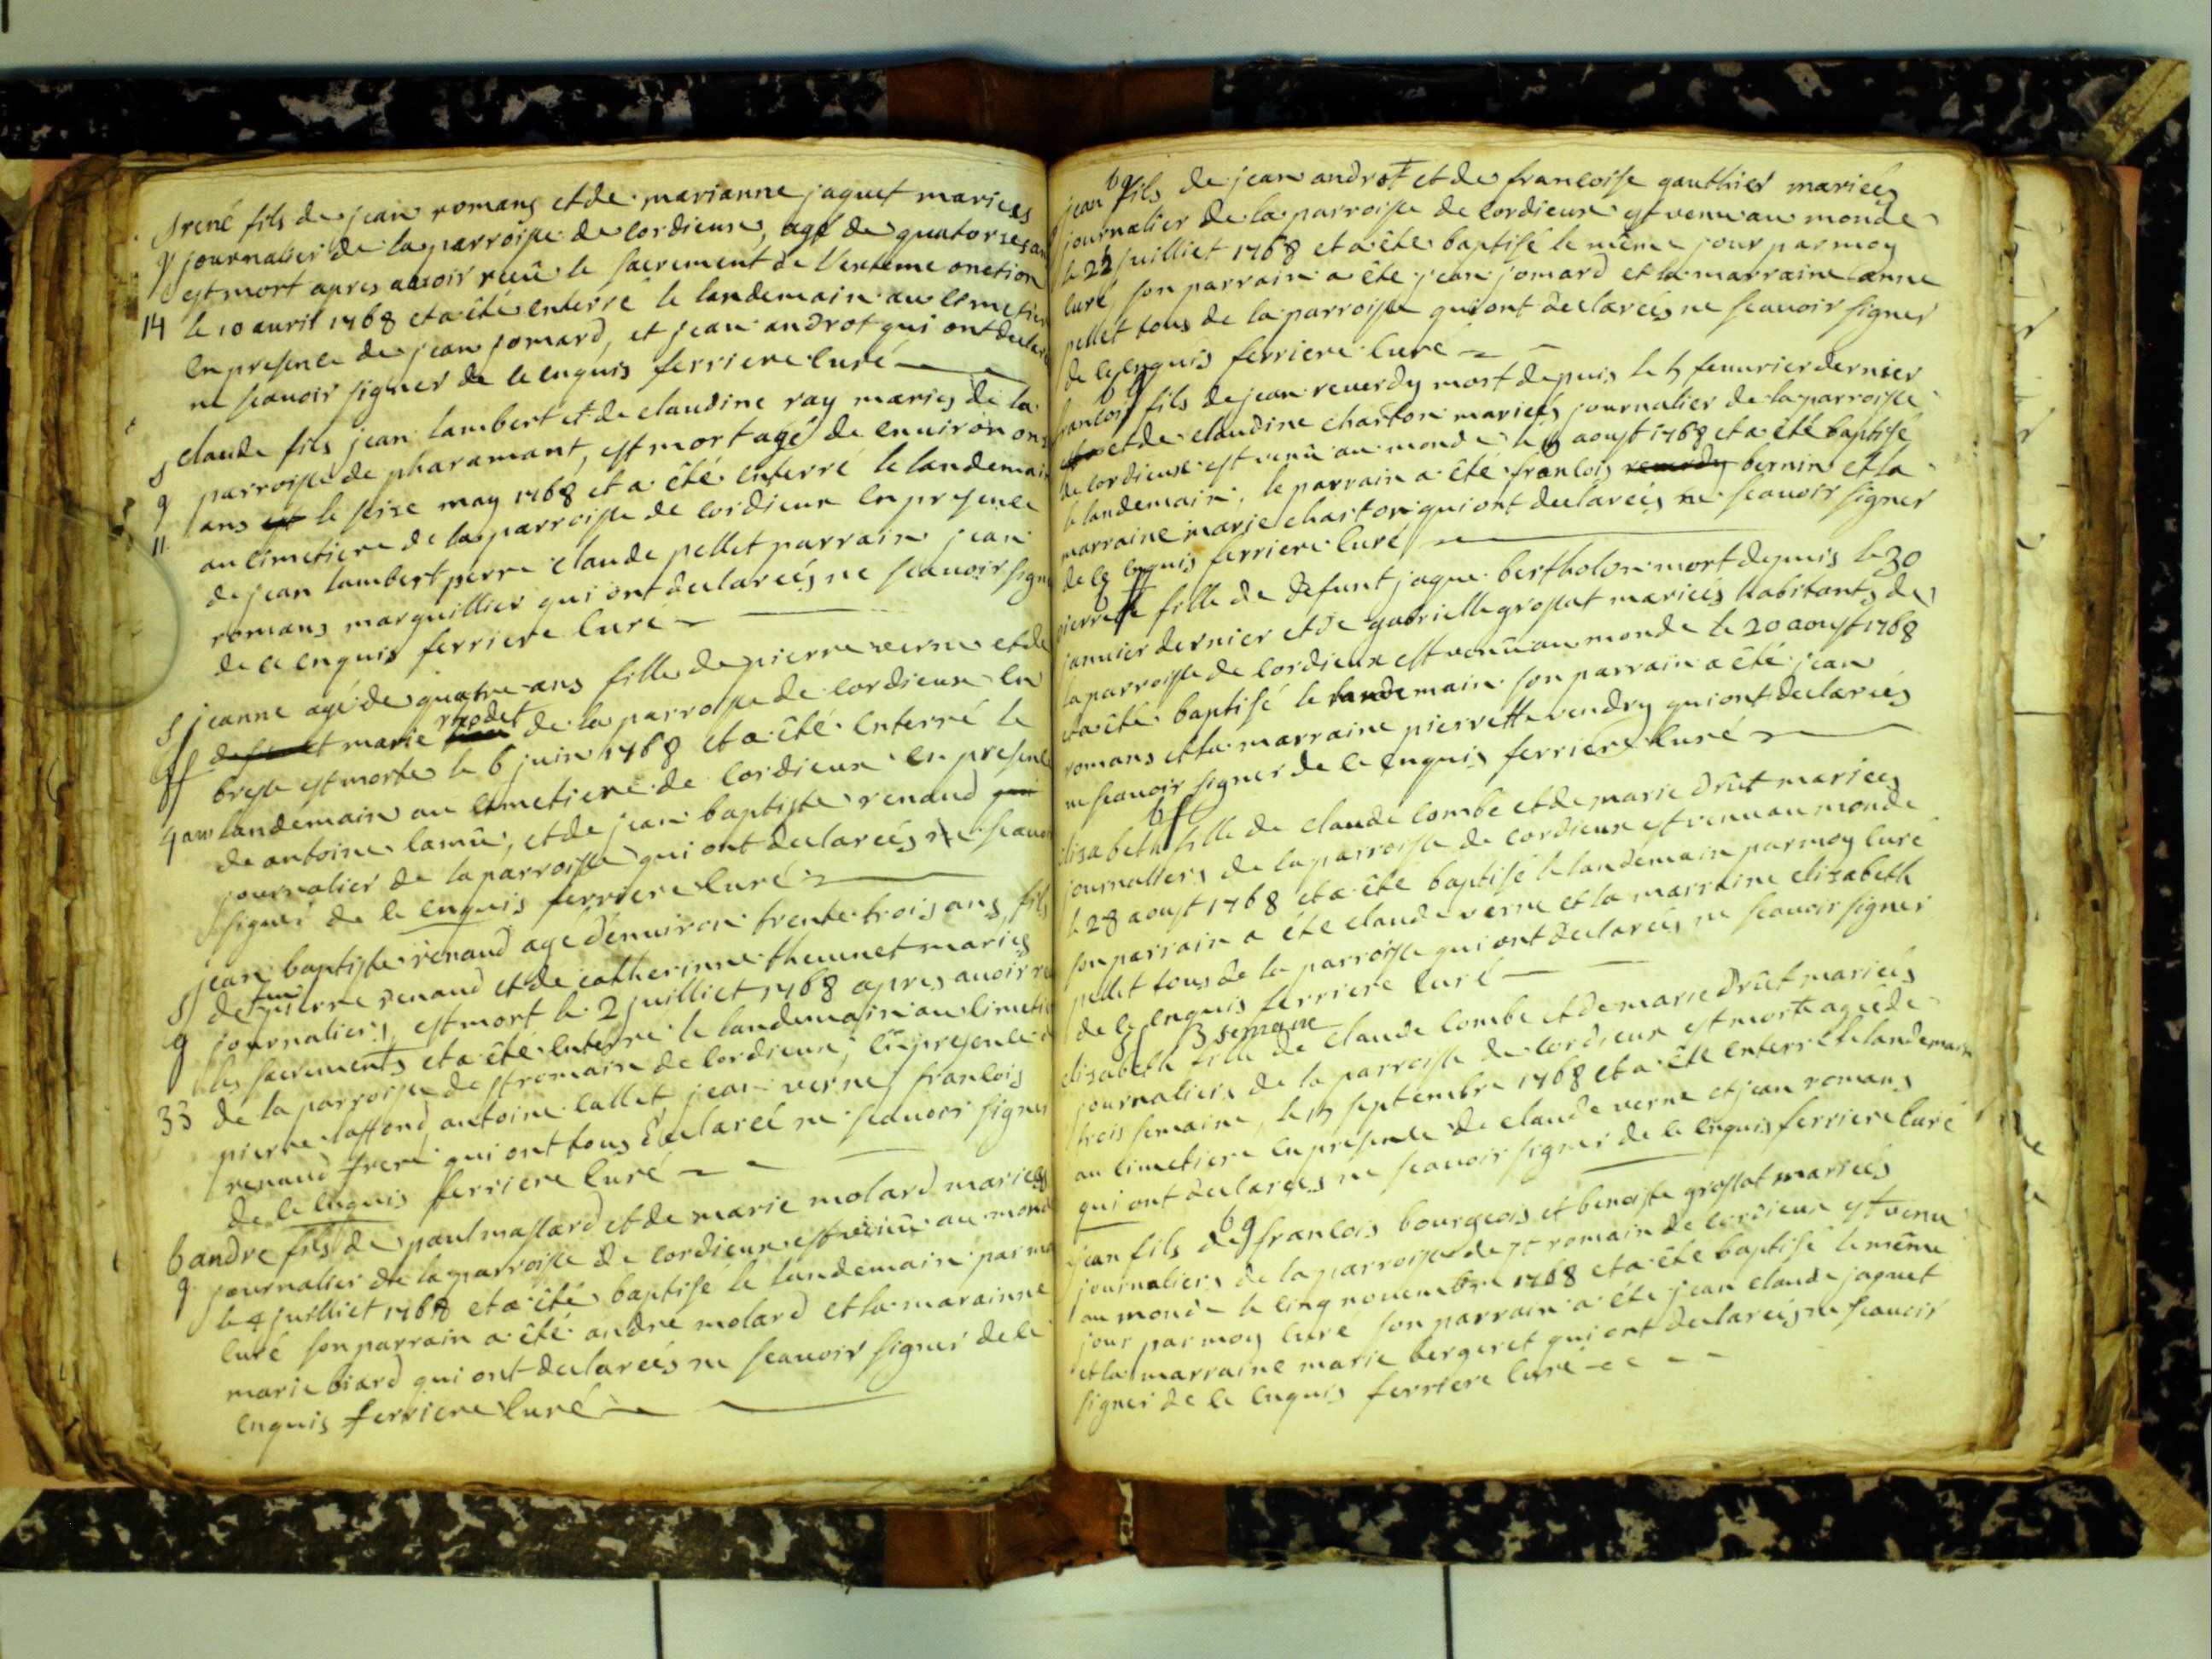 S rené fils de jean romans et de marianne jaquet mariees
g journalier de la parroisse de cordieux, agé de quatorse an
est mort apres avoir reçû le sacrement de l'extreme onction
14 le 10 avril 1768 et a été enterré le landemain au cimetier
en presence de jean jomard, et jean androt qui ont declaré
ne scavoir signer de ce enquis ferriere curé
S claude fils jean lambert et de claudine ray maries de la
g parroisse de pharamant, est mort agé de environ onse
11 ans est le seise may 1768 et a été enterré le landemain
au cimetiere de la parroisse de cordieux en presence
de jean lambert perre claude pellet parrain jean
romans marguillier qui ont declareés ne scavoir signer
de ce enquis ferriere curé
S jeanne agé de quatre ans fille de pierre verne et de
rodet
f defunt marie de la parroisse de cordieux en
bresse est morte le 6 juin 1768 et a été enterré le
4 ans landemain au cimetiere de cordieux en presence
de antoine camû, et de jean baptiste renaud
journalier de la parroisse qui ont declareés ne scavoir
signer de ce enquis ferriere curé
jean baptiste renaud agé d'environ trente trois ans, fils
S de pierre renaud et de catherinne thevenet maries
g journaliers, est mort le 2 juilliet 1768 apres avoir re
les sacrements et a été enterré le landemain au cimetie
33 de la parroisse de st romain de cordieux, en presence d
pierre laffond, antoine callet jean verne, francois
renaud frere qui ont tous declareé ne scavoir signer
de ce enquis ferriere curé
b andre fils de paul massard et de marie molard mariees
g journalier de la parroisse de cordieux est venû au mond
le 4 juilliet 1768 et a été baptisé le landemain par mo
curé son parrain a été andre molard et la marainne
marie biard qui ont declareés ne scavoir signer de ce
enquis ferriere curé
b g
jean fils de jean androt et de francoise gauthier marieés
journalier de la parroisse de cordieux est venu au monde
le 22 juilliet 1768 et a été baptisé le même jour par moy
curé, son parrain a été jean jomard et la marraine anne
pellet tous de la parroisse qui ont declareés ne scavoir signer
de ce enquis ferriere curé
b g
francois fils de jean reverdy mort depuis le 5 fevvrier dernier
et de claudine charton marieés journalier de la parroisse
de cordieux est venû au monde le 8 aoust 1768 et a été baptisé
le landemain, le parrain a été francois reverdy bernin et la
marraine marie charton qui ont declareés ne scavoir signer
de ce enquis ferriere curé
pierrette fille de defunt jaque bertholon mort depuis le 30
janvier dernier et de gabrielle grossat marieés habitants de
la parroisse de cordieux est venuë au monde le 20 aoust 1768
et a été baptisé le landemain son parrain a été jean
romans et la marraine pierrette vendry qui ont declareés
ne scavoir signer de ce enquis ferriere curé
b f
elisabeth fille de claude combe et de marie drût mariees
journaliers de la parroisse de cordieux est venu au monde
le 28 aoust 1768 et a été baptisé le landemain par moy curé
son parrain a été claude verne et la marraine elisabeth
pellet tous de la parroisse qui ont declareés ne scavoir signer
de ce enquis ferriere curé
S f 3 semaine
elisabeth fille de claude combe et de marie drût marieés
journaliers de la parroisse de cordieux est morte ageé de
trois semaine, le 15 septembre 1768 et a été enterré le landemain
au cimetiere en presence de claude verne et jean romans
qui ont declareés ne scavoir signer de ce enquis ferriere curé
b g
jean fils de francois bourgeois et benoiste grossat marieés
journaliers de la parroisse de st romain de cordieux est venu
au monde le cinq novembre 1768 et a été baptisé le même
jour par moy curé son parrain a été jean claude jaquet
et la marraine marie bergeret qui ont declareés ne scavoir
signer de ce enquis ferriere curé